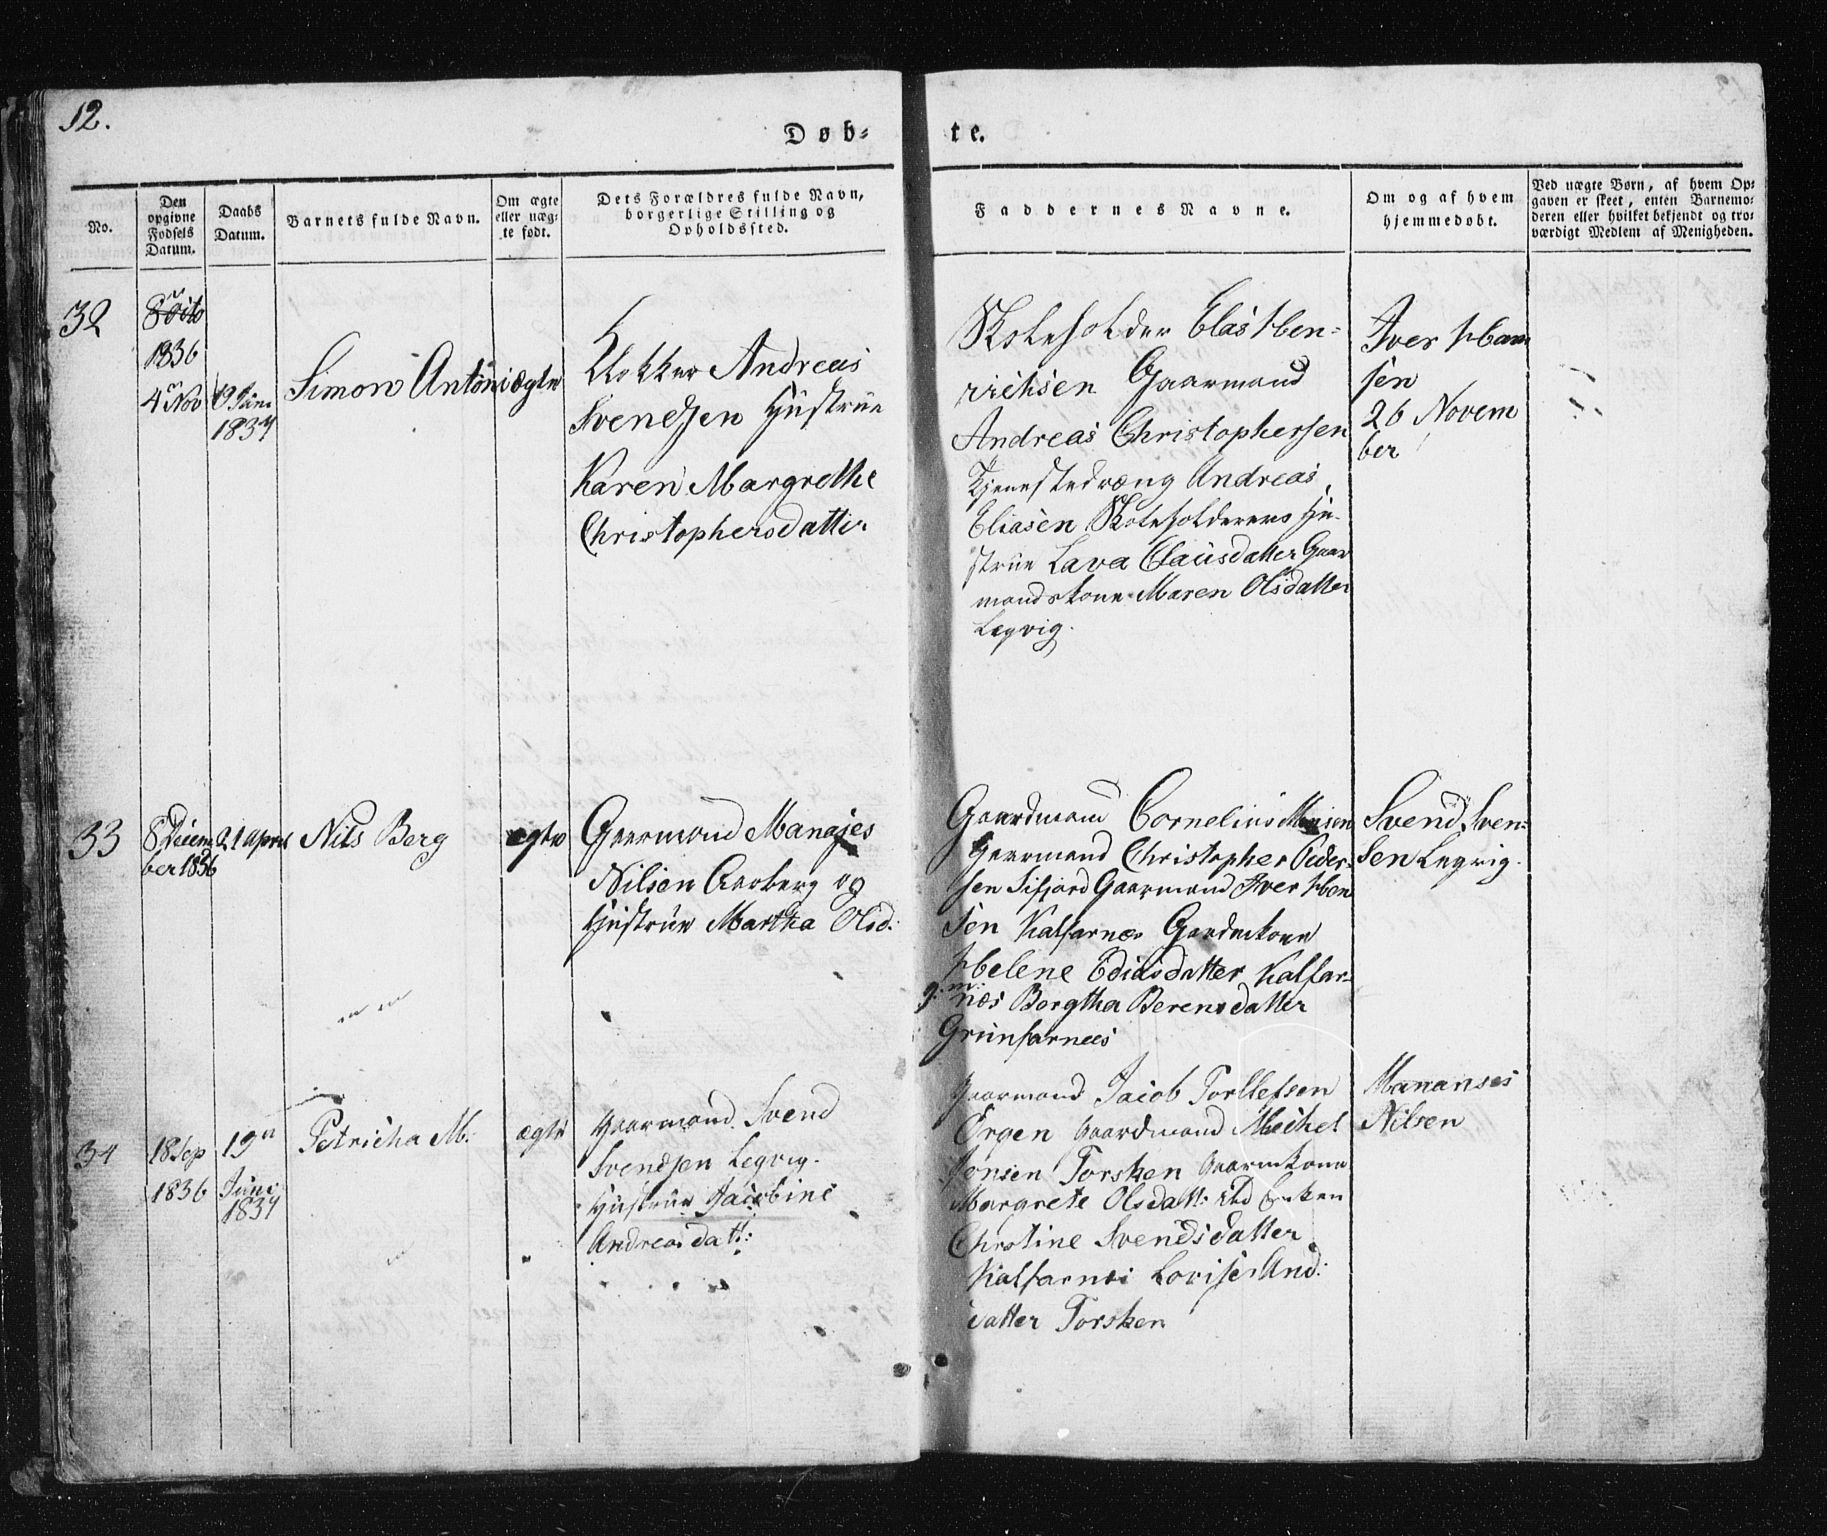 12.
Døb-
te.
No.
Den
opgivne
Fødsels
Datum.
Daabs
Datum.
Barnets fulde Navn.
Om ægte
eller uæg-
te født.
Dets Forældres fulde Navn,
borgerlige Stilling og
Opholdssted.
Faddernes Navne.
Om og af hvem
hjemmedøbt.
Ved uægte Børn, af hvem Op-
gaven er skeet, enten Barnemo-
deren eller hvilket bekjendt og tro-
værdigt Medlem af Menigheden.
32
1836
4 Nov
9 Juni
1837
Simon Antoni
ægte
Klokker Andreas
Svendsen Hustrue
Karen Margrethe
Christophersdatter
Skoleholder Elas Hen-
richsen Gaarmand
Andreas Christophersen
Tjenestedræng Andreas
Eliasen Skoleholderens Hu-
strue Lava Clausdatter Gaar
mandskone Maren Olsdatter
Legvig.
Iver Han
sen
26 Novem
ber
33
8 Decem
ber 1836
21 April
Nils Berg
ægte
Gaarmand Manases
Nilsen Aaroberg og
Hustrue Martha Olsd:
Gaardmand Cornelius Monsen
Gaarmand Christopher Peder-
sen Sifjord Gaarmand Iver Han
sen Kalfarnes Gaardmkone
Helene Ediasdatter Kalfar-
g. m: nes Bergtha Berensdatter
Grunfarnees
Svend Sven-
sen Legvig.
34
18 Sep
1836
19n
Juni
1837
Petricha M:
ægte
Gaarmand Svend
Svendsen Legvig.
Hustrue Jacobine
Andreasdatt:
Gaarmand Jacob Torllefsen
Ørgen Gaardmand Michel
Jonsen Torsken Gaarmkone
Margrete Olsdatt: Enken
Christine Svendsdatter
Kalfarnes Lovise And:
datter Torsken
Mananses
Nilsen